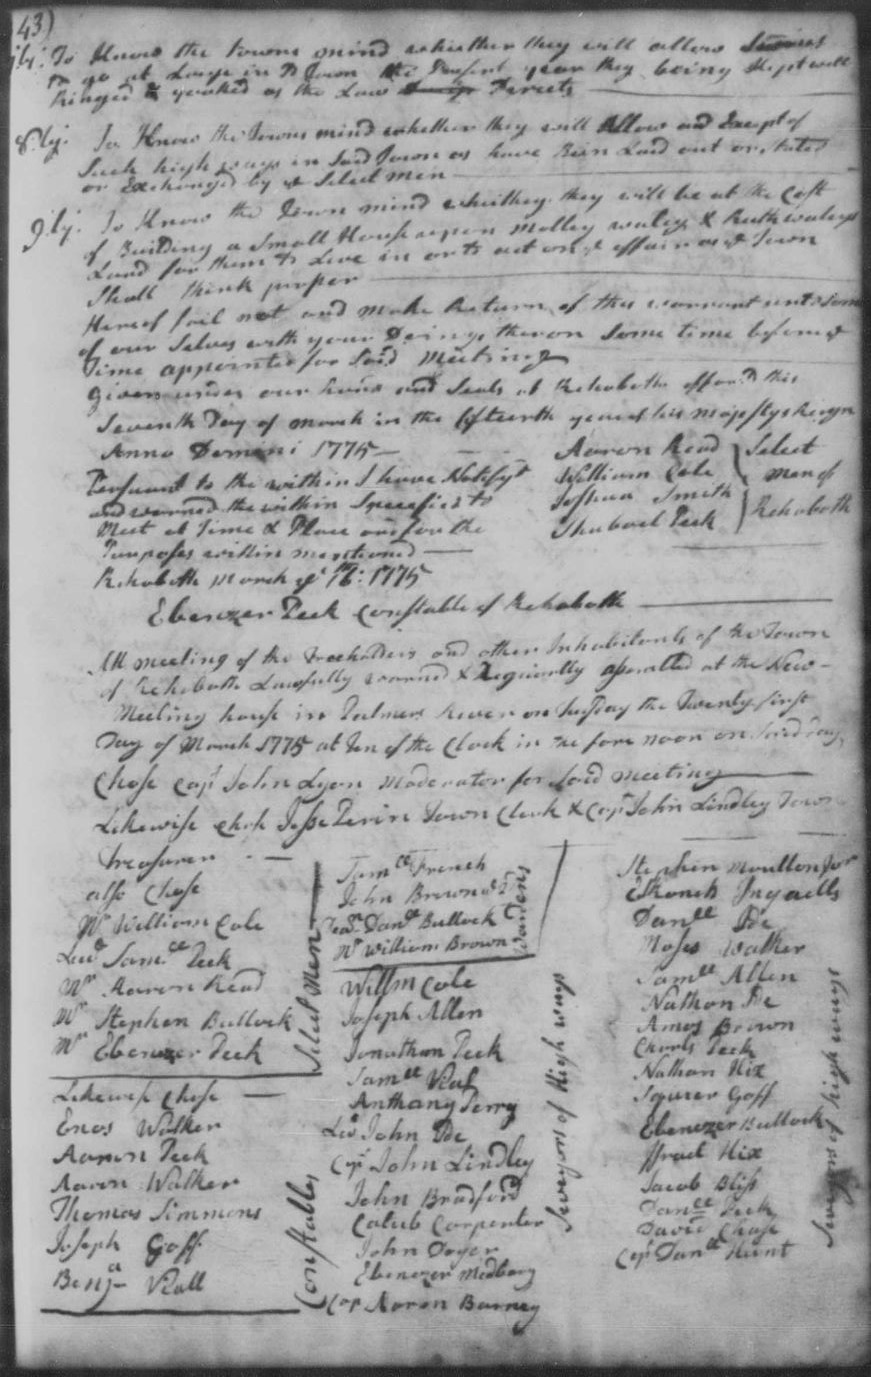 43)
7ly: To Know the towns mind whither they will allow Swines
to go at Large in sd Town the Present year they being Kept well
Ringed & yoaked as the Law Direcets
8.ly: To Know the Towns mind whether they will Allow and Except of
Such high ways in Said Town as have Bin Laid out or, Stated
or Exchanged by ye Select men
9.ly: To Know the Town mind whither they will be at the Cost
of Building a Small House upon Molley waley & Ruth waleys
Land for them to Live in or to act on ye affair as ye Town
Shall think proper
Hereof fail not and make Return of this warrant unto Som
of our Selves with your Doings theron Some time before ye
Time appointed for Said Meeting
Given under our hans and Seals at Rehoboth affor'd this
Seventh Day of March in the fifteenth year of his Majestys Reign
Anno Domeni 1775
Aaron Read
William Cole
Joshua Smith
Shubael Peck
Select
men of
Rehoboth
Persuant to the within I have Notifyd
and warned the within Specefied to
Meet at Time & Place and for the
Purposes within mentioned
Rehoboth March ye 16: 1775
Ebenezer Peck Constable of Rehoboth
At meeting of the Freeholders and other Inhabitants of the Town
of Rehoboth Lawfully warned & Reguierly assembled at the New-
Meeting house in Palmers River on Tusday the Twenty first
Day of March 1775 at Ten of the Clock in the fore noon on Said day,
Chose Capt John Lyon Moderator for Said meeting
Likewise Chose Jesse Perin Town Clerk & Capt John Lindley Town
Treasurer
also Chose
Mr William Cole
Leut Samll Peck
Mr Aaron Read
Mr Stephen Bullock
Mr Ebenezer Peck
Select Men
Likewise Chose
Enos Walker
Aaron Peck
Aaron Walker
Thomas Simmons
Joseph Goff
Benja Viall
Constables
Samll French
John Brown ye 2d
Dean Danll Bullock
Mr William Brown
Wardens
Willm Cole
Joseph Allen
Jonathan Peck
Samll Vial
Anthany Perry
Leut John Ide
Capt John Lindley
John Bradford
Calub Carpenter
John
Ebenezer Medbery
Cap Aaron Barney
Surveyors of High ways
Stephen Moulton Jur
Ingaells
Danll Ide
Moses Walker
Samll Allen
Nathan Ide
Amos Brown
Charls Peck
Nathan Hix
Squier Goff
Ebenezer Bullock
Israel Hix
Jacob Bliss
Danll Peck
David Chase
Capt Danll Hunt
Surveyors of high ways